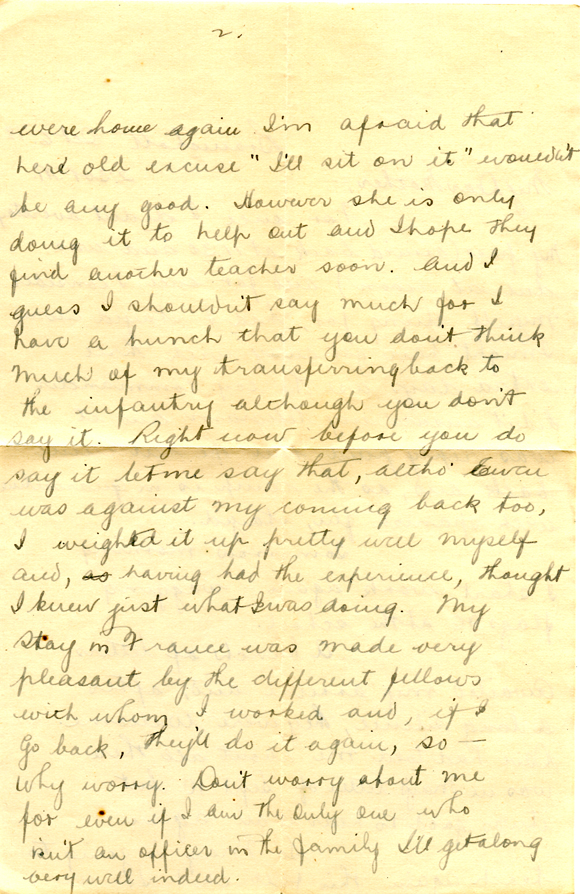 2.
were home again I'm afraid that
her old excuse "I'll sit on it" wouldn't
be any good. However she is only
doing it to help out and I hope they
find another teacher soon. And I
guess I shouldn't say much for I
have a hunch that you don't think
much of my transferring back to
the infantry although you don't
say it. Right now before you do
say it let me say that, altho' Ewen
was against my coming back too,
I weighed it up pretty well myself
and, as having had the experience, thought
I knew just what I was doing. My
stay in France was made very
pleasant by the different fellows
with whom I worked and, if I
go back, they'll do it again, so —
why worry. Don't worry about me
for even if I am the only one who
isn't an officer in the family I'll get along
very well indeed.